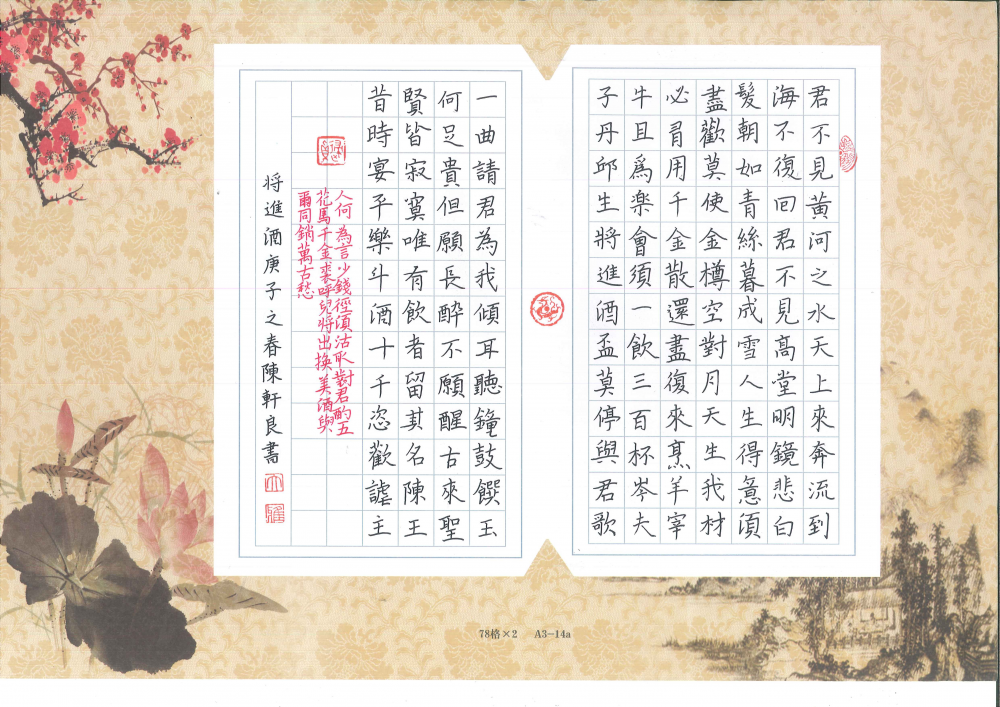 君不見黃河之水天上來奔流到
海不復回君不見高堂明鏡悲白
髮朝如青絲暮成雪人生得意須
盡歡莫使金樽空對月天生我材
必有用千金散還盡復來烹羊宰
牛且爲楽會須一飲三百杯岑夫
子丹邱生將進酒盃莫停與君歌
一曲請君為我傾耳聽鐘鼓饌玉
何足貴但願長醉不願醒古來聖
賢皆寂寞唯有飲者留其名陳王
昔時宴平樂斗酒十千恣歡謔主
人何為言少錢徑須沽取對君酌五
花馬千金裘呼兒將出換美酒與
爾同銷萬古愁
将進酒庚子之春陳軒良書
78格×2 A3-14a